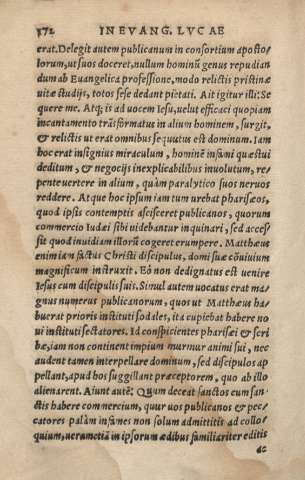 372 IN EVANG. LVCAE
erat. Delegit autem publicanum in consortium aposto/
lorum, ut suos doceret, nullum hominũ genus repudian
dum ab Euangelica professione, modo relictis pristinæ
uitæ studijs, totos sese dedant pietati. Ait igitur illi: Se
quere me. Atq; is ad uocem Iesu, uelut efficaci quopiam
incantamento trãsformatus in alium hominem, surgit,
& relictis ut erat omnibus sequutus est dominum. Iam
hoc erat insignius miraculum, hominẽ infami quæstui
deditum, & negocijs inexplicabilibus inuolutum, re/
pente uertere in alium, quàm paralytico suos neruos
reddere. At que hoc ipsum iam tum urebat pharisæos,
quod ipsis contemptis ascisceret publicanos, quorum
commercio Iudæi sibi uidebantur inquinari, sed acces/
sit quod inuidiam illorũ cogeret erumpere. Matthæus
enim iam factus Christi discipulus, domi suæ cõuiuium
magnificum instruxit. Eò non dedignatus est uenire
Iesus cum discipulis suis. Simul autem uocatus erat ma
gnus numerus publicanorum, quos ut Matthæus ha/
buerat prioris instituti sodales, ita cupiebat habere no
ui instituti sectatores. Id conspicientes pharisæi & scri
bæ, iam non continent impium murmur animi sui, nec
audent tamen interpellare dominum, sed discipulos ap
pellant, apud hos suggillant præceptorem, quo ab illo
alienarent. Aiunt autẽ: Quum deceat sanctos cum san/
ctis habere commercium, quur uos publicanos & pec/
catores palàm infames non solum admittitis ad collo
quium, uerumetiã in ipsorum ædibus familiariter editis
ac